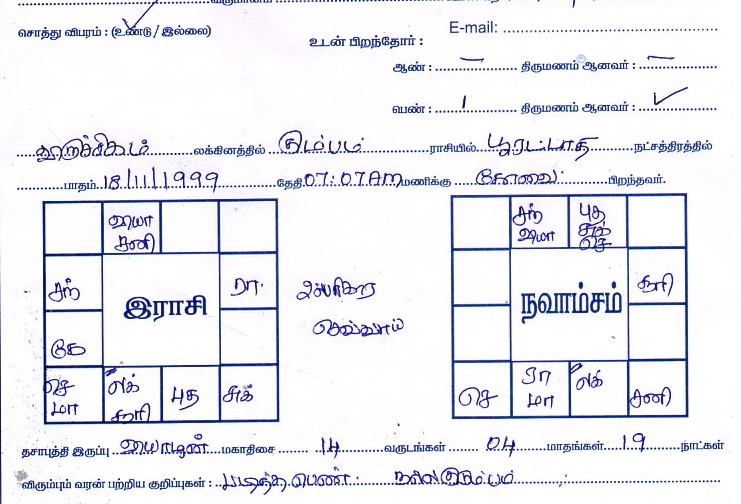 சொத்து விபரம் : (உண்டு / இல்லை)
உடன் பிறந்தோர் :
E-mail:
ஆண் : – திருமணம் ஆனவர் : –
பெண் : 1 திருமணம் ஆனவர் : ✓
விருச்சிகம் லக்கினத்தில் கும்பம் ராசியில் பூரட்டாதி நட்சத்திரத்தில்
பாதம் 18/11/1999 தேதி 07:07AM மணிக்கு கோவை பிறந்தவர்.
வியா
சனி
சந்
ரா.
இராசி
கே
செ
மா
லக்
சூரி
புத
சுக்
பரிகார
செவ்வாய்
சந்
வியா
புத
சுக்
கே
சூரி
நவாம்சம்
செ
ரா
மா
லக்
சனி
தசாபுத்தி இருப்பு வியாழன் மகாதிசை 14 வருடங்கள் 04 மாதங்கள் 19 நாட்கள்
விரும்பும் வரன் பற்றிய குறிப்புகள் : படித்த பெண். நல்ல குடும்பம்